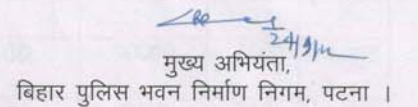 24/9/14
मुख्य अभियंता,
बिहार पुलिस भवन निर्माण निगम, पटना ।